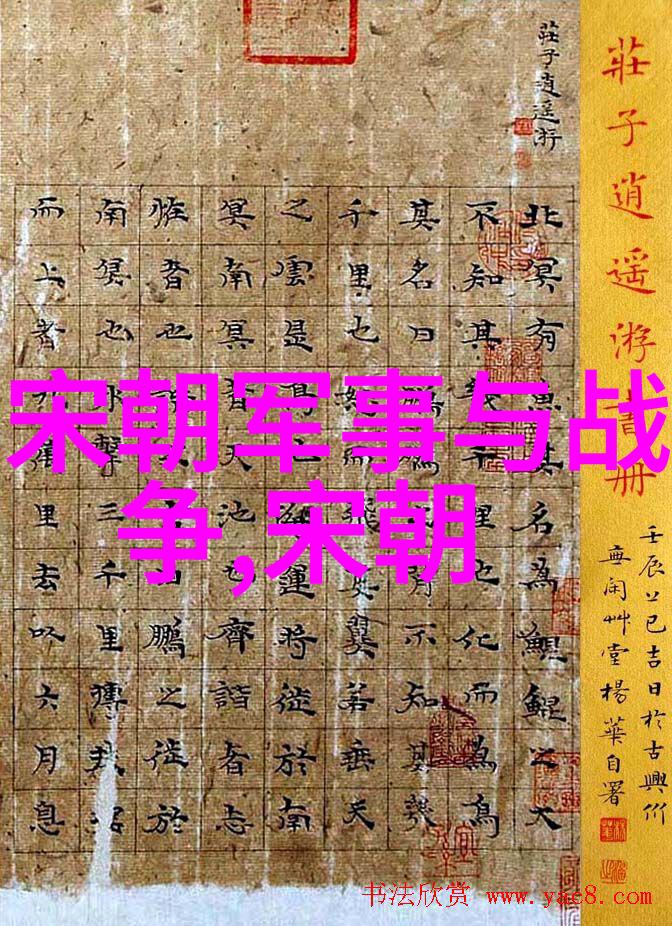 宋朝军事与战
争,宋朝
莊子逍遥游書册
壬辰上巳吉日於古興
閑艸堂楊華自署
莊子逍遥游
北冥有魚其名為鯤鯤之大
不知其幾千里也化而為鳥
其名曰鵬鵬之背不知其幾
千里也怒而飛其翼若垂天
之雲是鳥也海運將徙於南
冥南冥者天池也齊諧者志
恠者也諧之言曰鵬之徙於
南冥也水擊三千里摶扶搖
而上者九萬里去以六月息
书法欣赏 www.yac8.com